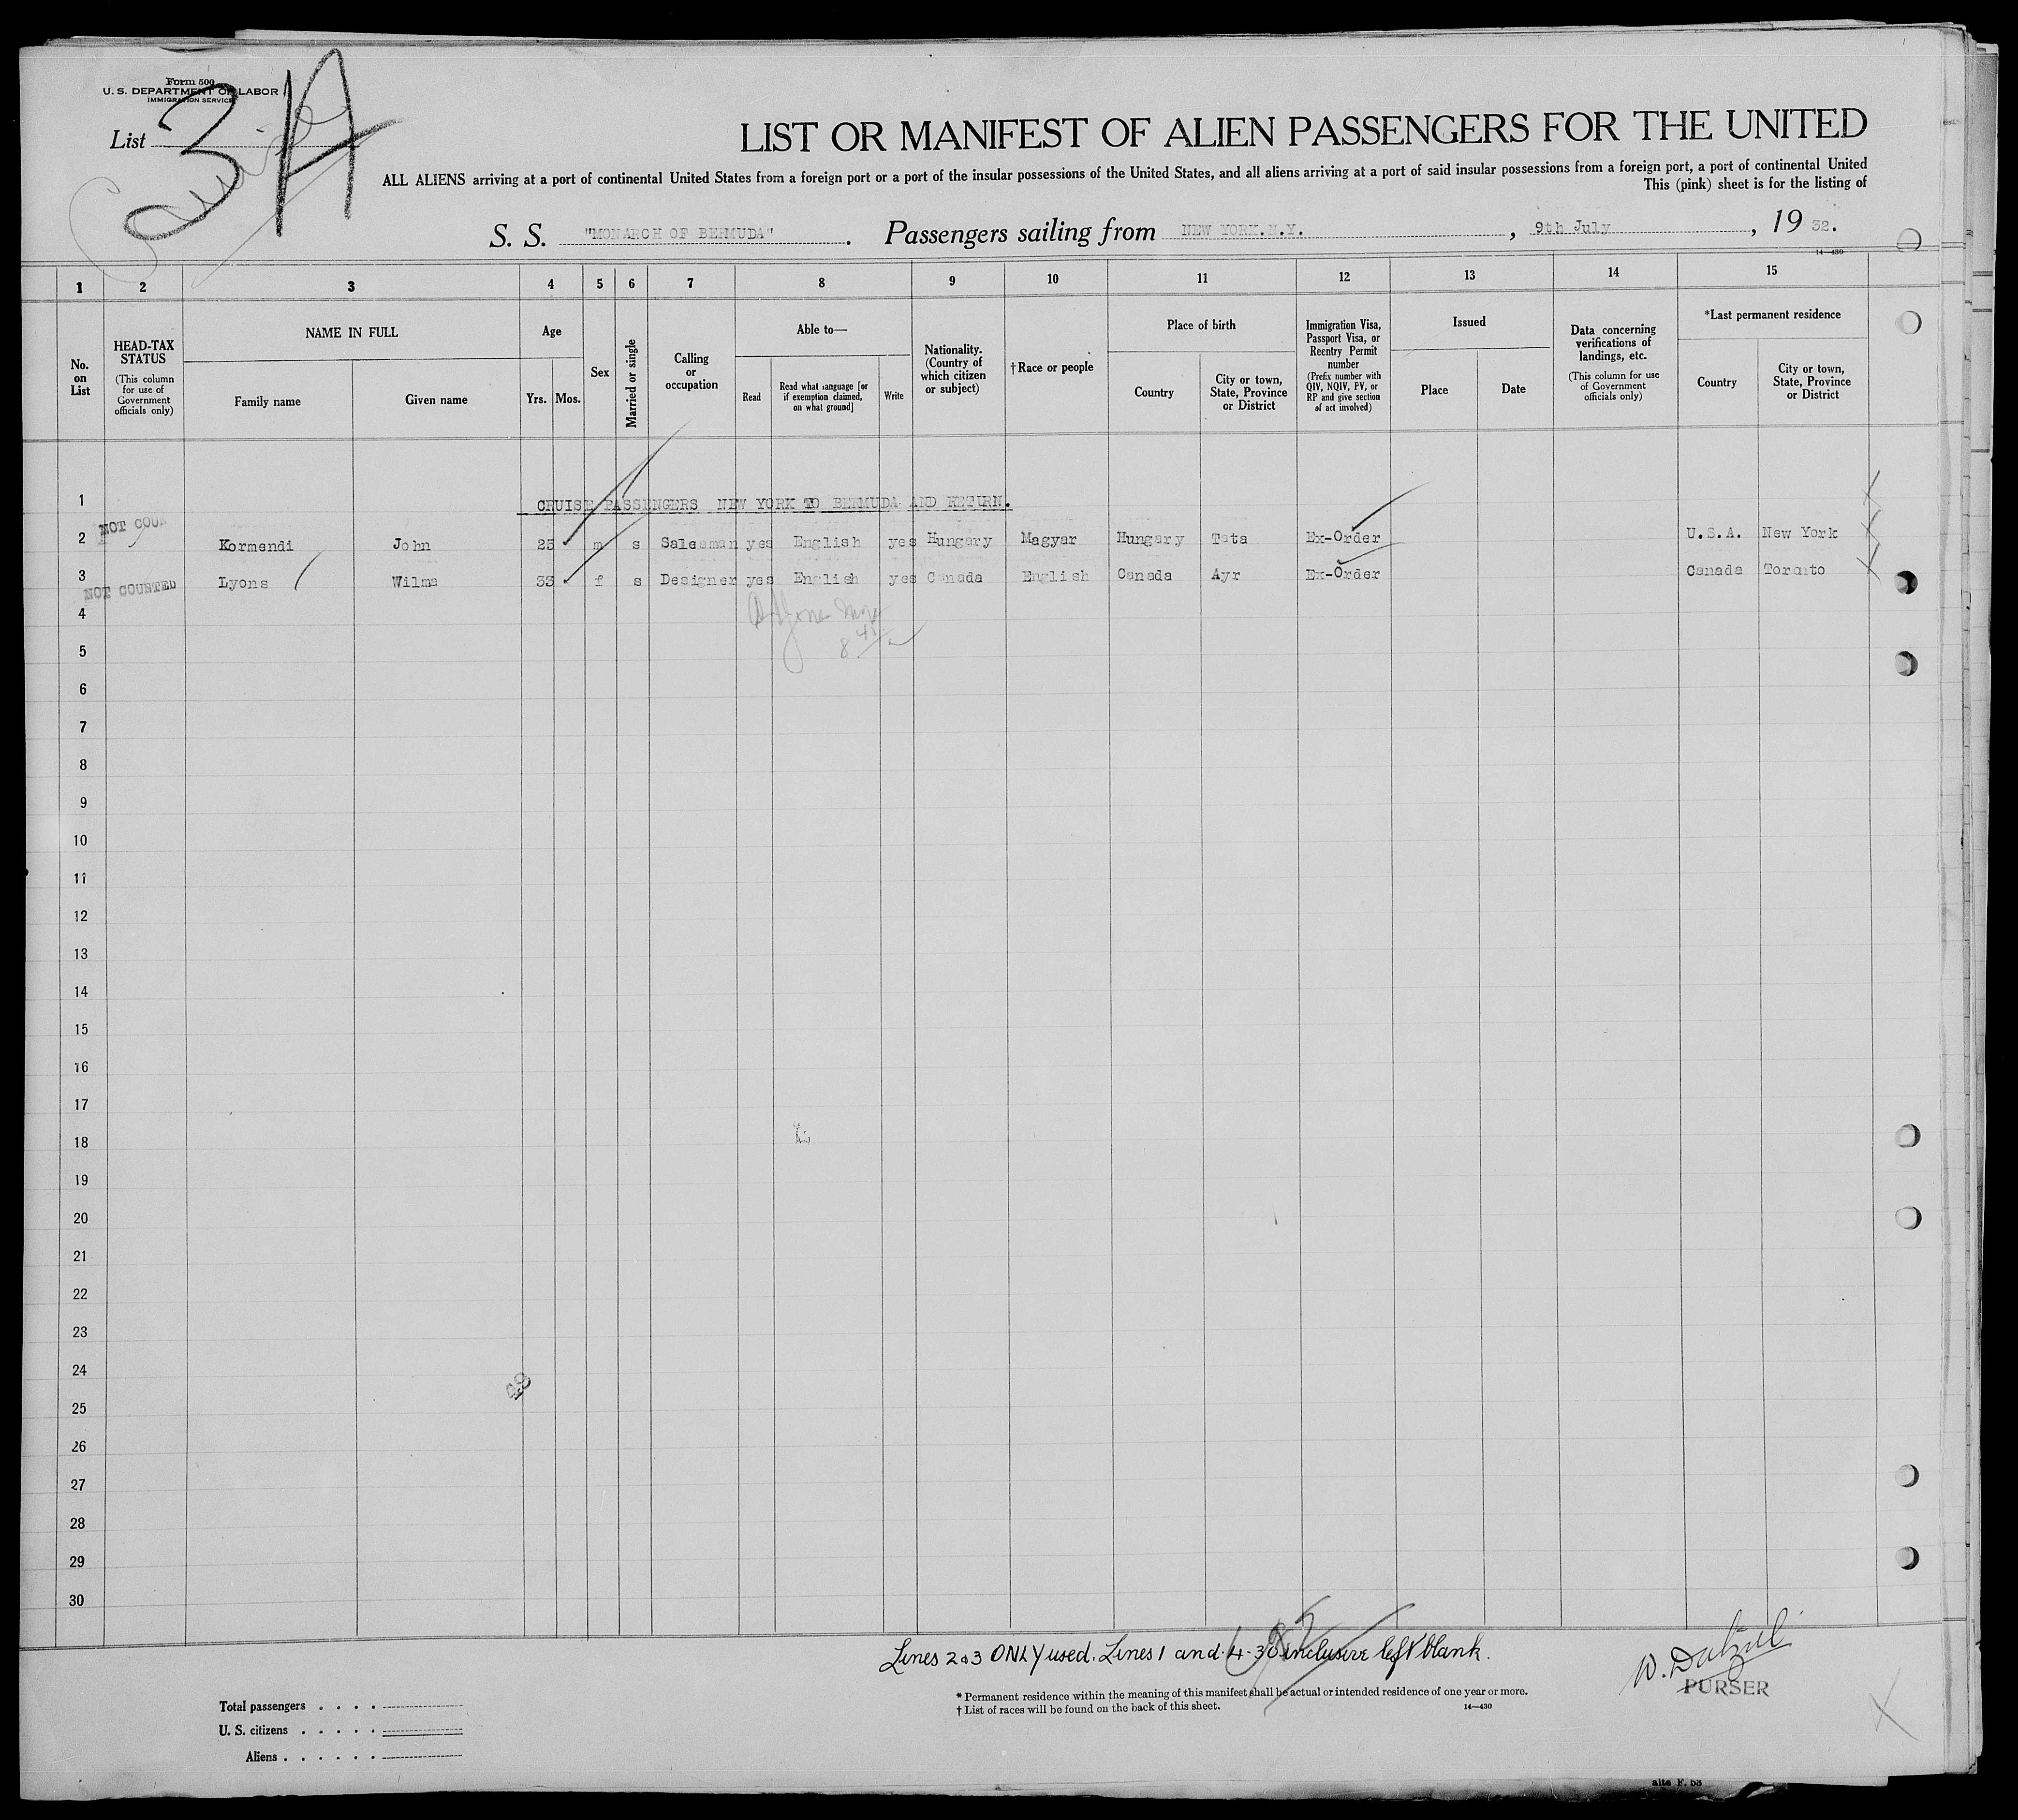 Form 500
U. S. DEPARTMENT OF LABOR
IMMIGRATION SERVICE
List 3 A
Cruise
LIST OR MANIFEST OF ALIEN PASSENGERS FOR THE UNITED
ALL ALIENS arriving at a port of continental United States from a foreign port or a port of the insular possessions of the United States, and all aliens arriving at a port of said insular possessions from a foreign port, a port of continental United
This (pink) sheet is for the listing of
S. S. "MONARCH OF BERMUDA". Passengers sailing from NEW YORK.N.Y., 9th July, 19 32.
14—430
1 2 3 4 5 6 7 8 9 10 11 12 13 14 15
No. on List
HEAD-TAX STATUS (This column for use of Government officials only)
NAME IN FULL Family name Given name
Age Yrs. Mos.
Sex
Married or single
Calling or occupation
Able to— Read Read what language [or if exemption claimed, on what ground] Write
Nationality. (Country of which citizen or subject)
†Race or people
Place of birth Country City or town, State, Province or District
Immigration Visa, Passport Visa, or Reentry Permit number (Prefix number with QIV, NQIV, PV, or RP and give section of act involved)
Issued Place Date
Data concerning verifications of landings, etc. (This column for use of Government officials only)
*Last permanent residence Country City or town, State, Province or District
1 CRUISE PASSENGERS NEW YORK TO BERMUDA AND RETURN.
NOT COUN
2 Kormendi John 25 m s Salesman yes English yes Hungary Magyar Hungary Tata Ex-Order U.S.A. New York
3 Lyons Wilma 33 f s Designer yes English yes Canada English Canada Ayr Ex-Order Canada Toronto
NOT COUNTED
4
5
6
7
8
9
10
11
12
13
14
15
16
17
18
19
20
21
22
23
24
25
26
27
28
29
30
Lines 2&3 ONLY used. Lines 1 and 4-30 inclusive left blank.
W. Dalziel
PURSER
* Permanent residence within the meaning of this manifest shall be actual or intended residence of one year or more.
† List of races will be found on the back of this sheet.
14—430
Total passengers . . . .
U. S. citizens . . . . .
Aliens . . . . . .